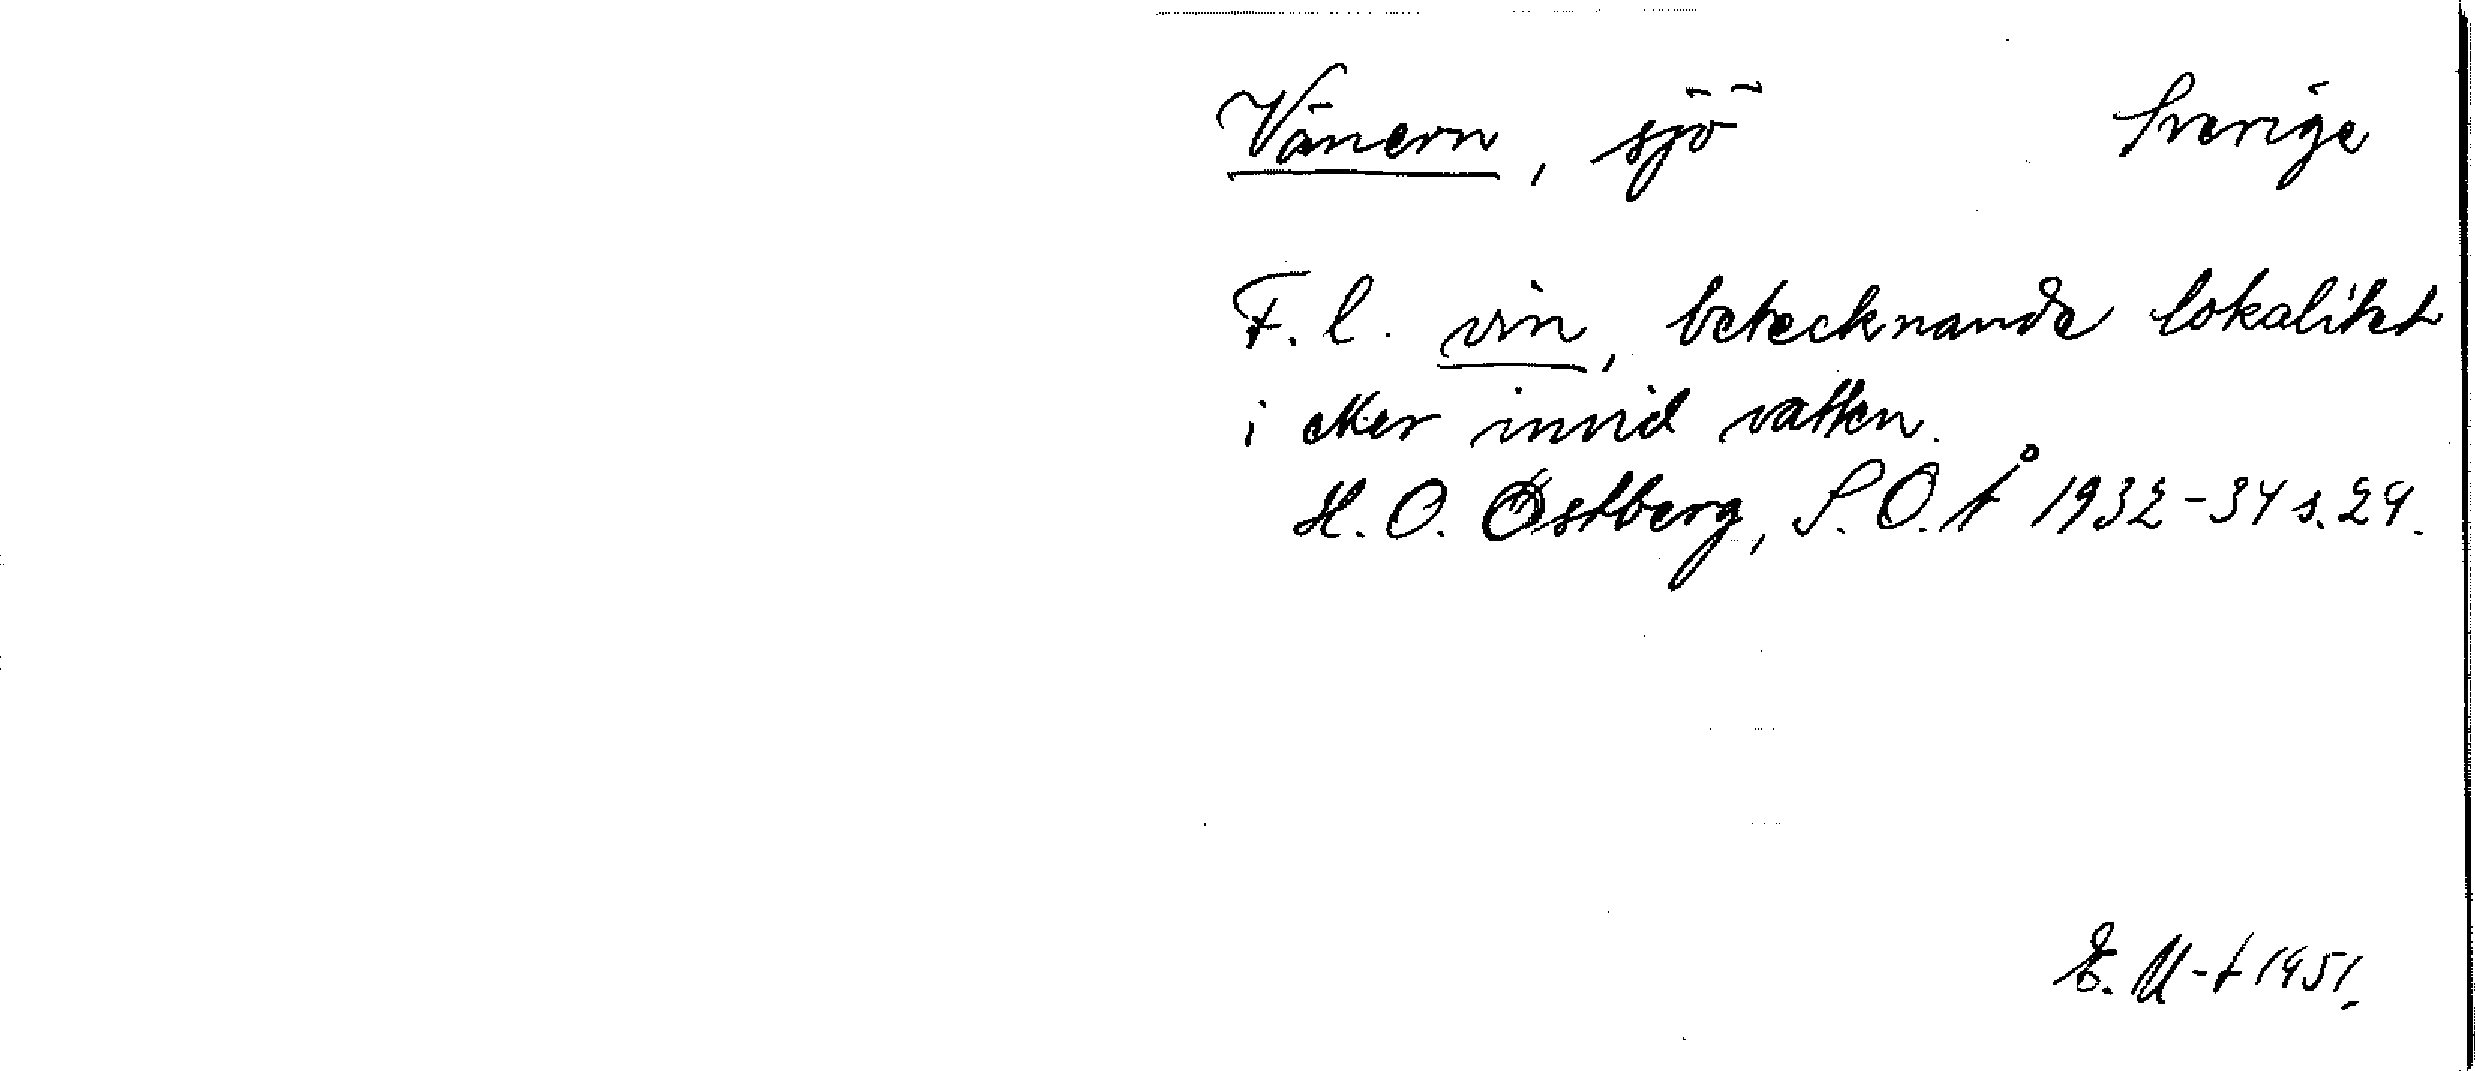 Vänern, sjö Sverige
F.l. vin, betecknande lokalitet
i eller invid vatten.
H. O. Östberg, S.O.Å 1932-34 s. 24.
E. M-t 1951.